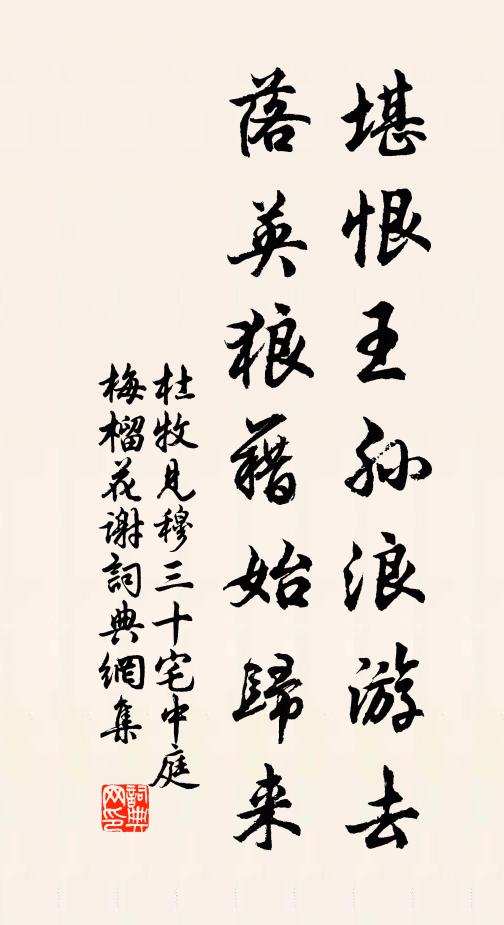 堪恨王孙浪游去
落英狼藉始歸来
杜牧見穆三十宅中庭
梅榴花谢詞典網集
詞典网印